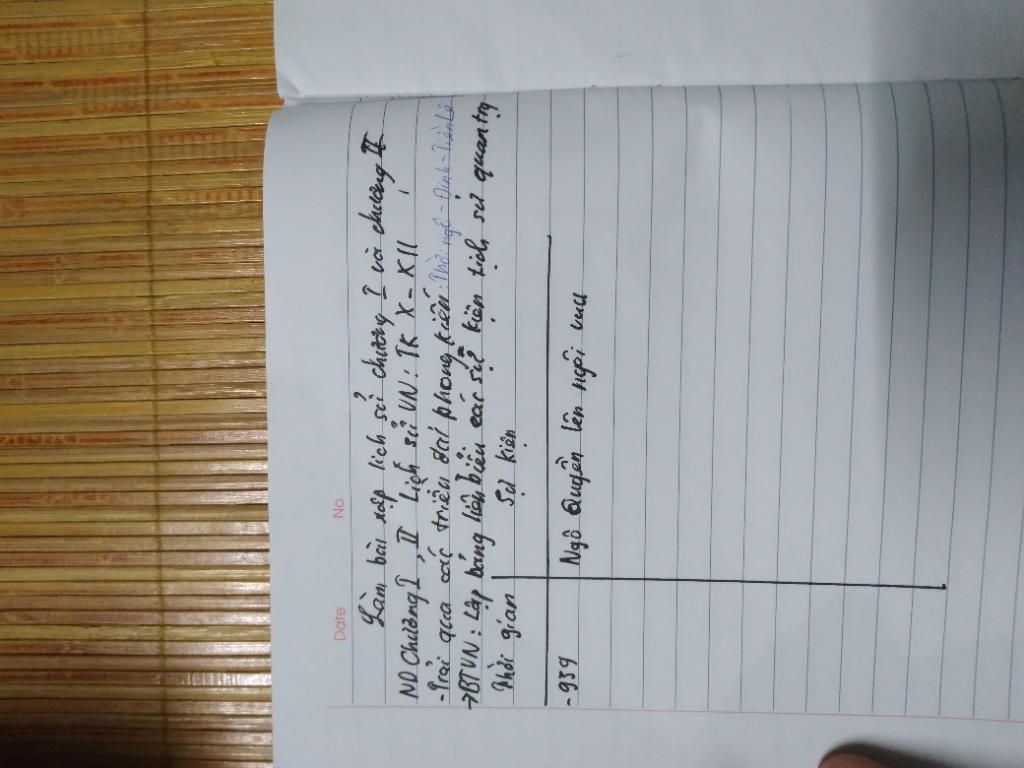 Date No
Làm bài tập lịch sử chương I và chương II
ND Chương I, II Lịch sử VN: TK X - XII
- Trải qua các triều đại phong kiến: Thời ngô - Đinh - Tiền Lê
→ BTVN: Lập bảng liên biểu các sự kiện lịch sử quan trọ
Thời gian Sự kiện
- 939 Ngô Quyền lên ngôi vua